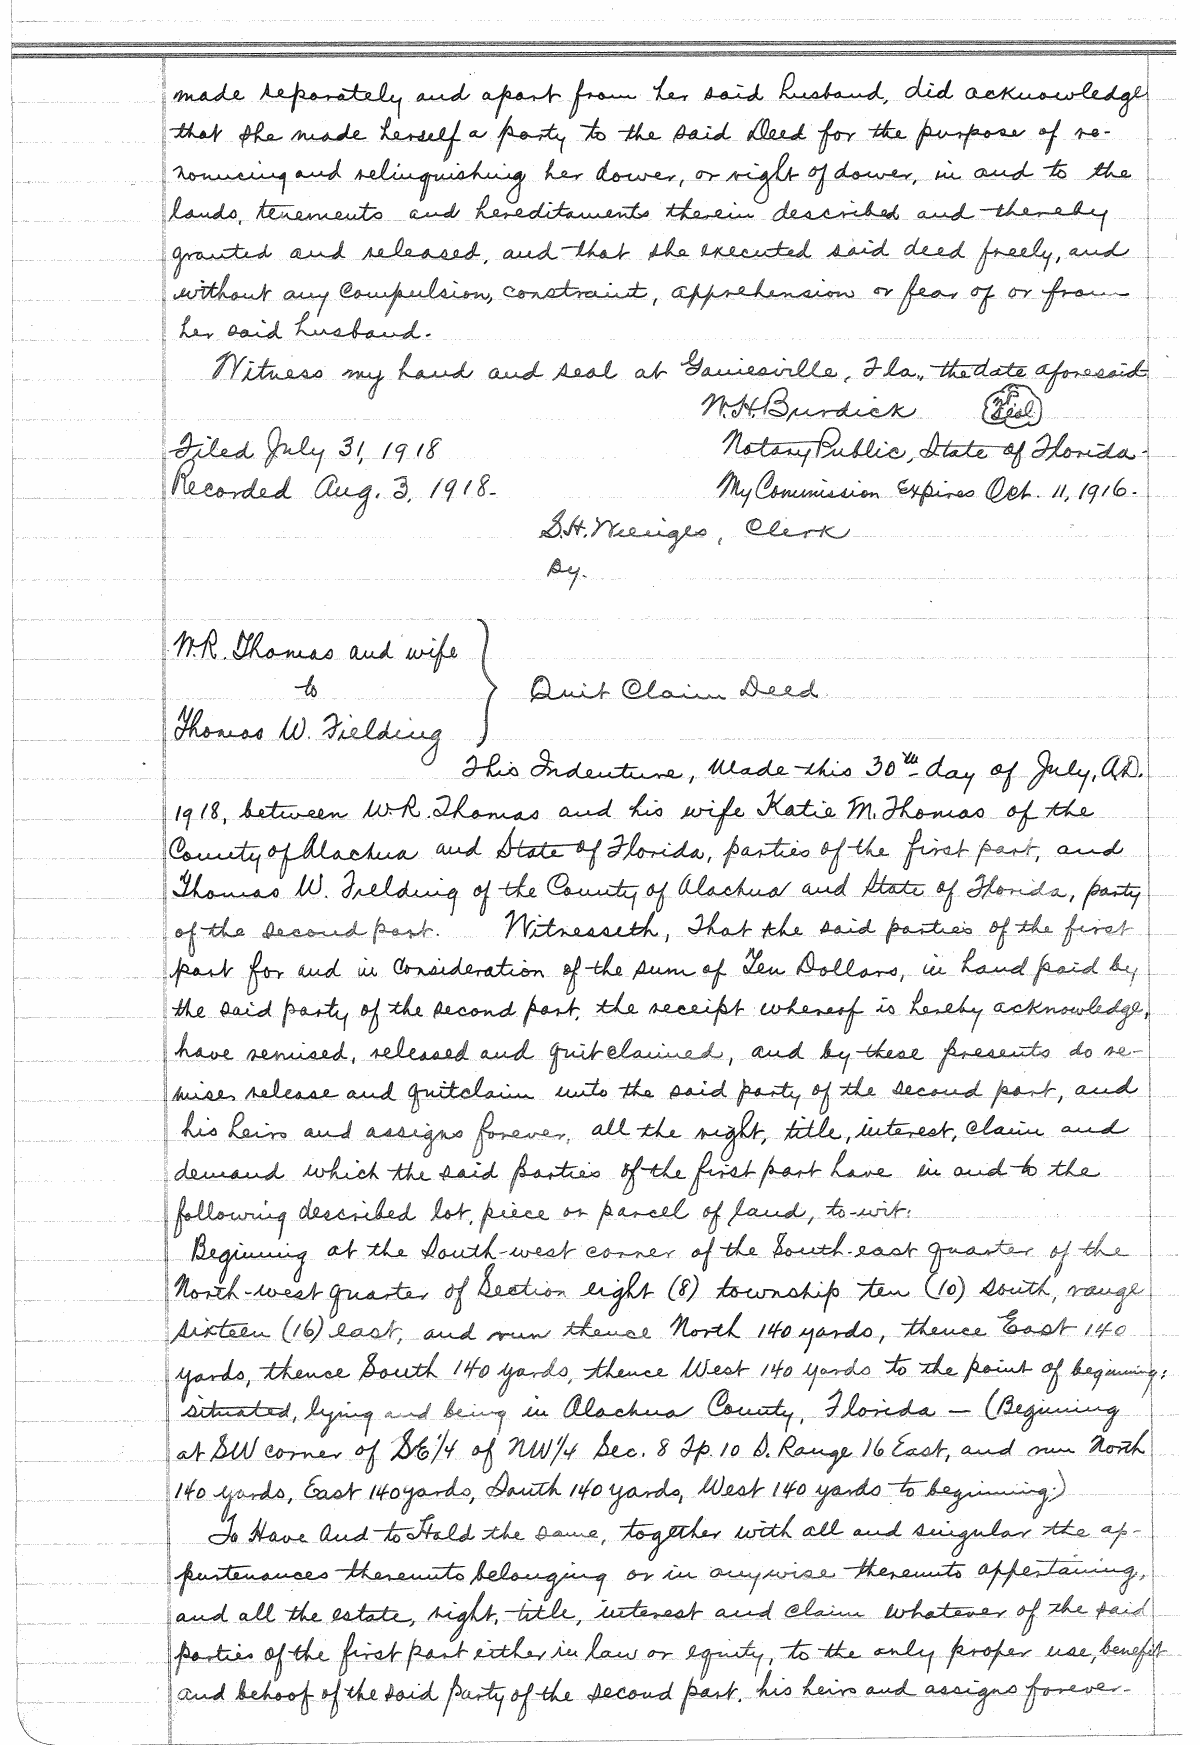 made separately and apart from her said husband, did acknowledge
that she made herself a party to the said Deed for the purpose of re-
nouncing and relinquishing her dower, or right of dower, in and to the
lands, tenements and hereditaments therein described and thereby
granted and released, and that she executed said deed freely, and
without any Compulsion, constraint, apprehension or fear of or from
her said husband.
Witness my hand and seal at Gainesville, Fla., the date aforesaid
W.H. Burdick
N P Seal
Filed July 31, 1918
Notary Public, State of Florida.
Recorded Aug. 3, 1918.
My Commission Expires Oct. 11, 1916.
S.H. Wienges, Clerk
By.
W.R. Thomas and wife
to
Quit Claim Deed.
Thomas W. Fielding
This Indenture, Made this 30th day of July, A.D.
1918, between W.R. Thomas and his wife Katie M. Thomas of the
County of Alachua and State of Florida, parties of the first part, and
Thomas W. Fielding of the County of Alachua and State of Florida, party
of the second part. Witnesseth, That the said parties of the first
part for and in Consideration of the sum of Ten Dollars, in hand paid by
the said party of the second part, the receipt whereof is hereby acknowledge,
have remised, released and quitclaimed, and by these presents do re-
mise, release and quitclaim unto the said party of the second part, and
his heirs and assigns forever, all the right, title, interest, claim and
demand which the said parties of the first part have in and to the
following described lot, piece or parcel of land, to-wit:
Beginning at the South-west corner of the South-east quarter of the
North-west quarter of Section eight (8) township ten (10) south, range
sixteen (16) east, and run thence North 140 yards, thence East 140
yards, thence South 140 yards, thence West 140 yards to the point of beginning;
situated, lying and being in Alachua County, Florida — (Begining
at SW corner of SE 1/4 of NW 1/4 Sec. 8 Tp. 10 S. Range 16 East, and run North
140 yards, East 140 yards, South 140 yards, West 140 yards to beginning.)
To Have And to Hold the same, together with all and singular the ap-
purtenances thereunto belonging or in anywise thereunto appertaining,
and all the estate, right, title, interest and claim whatever of the said
parties of the first part either in law or equity, to the only proper use, benefit
and behoof of the said party of the second part, his heirs and assigns forever.